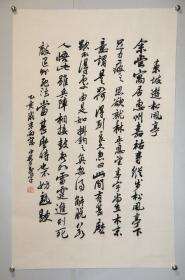 東坡遊松風亭
余嘗寓居惠州嘉祐寺縱步松風亭下
足力疲乏思欲就林止息望亭宇尚在木末
意謂是如何得到良久忽曰此間有甚麼
歇不得處由是如掛鉤之魚忽得解脫若
人悟此雖兵陣相接鼓聲如雷霆進則死
敵退則死法當甚麼時也不妨熟歇
乙亥歲